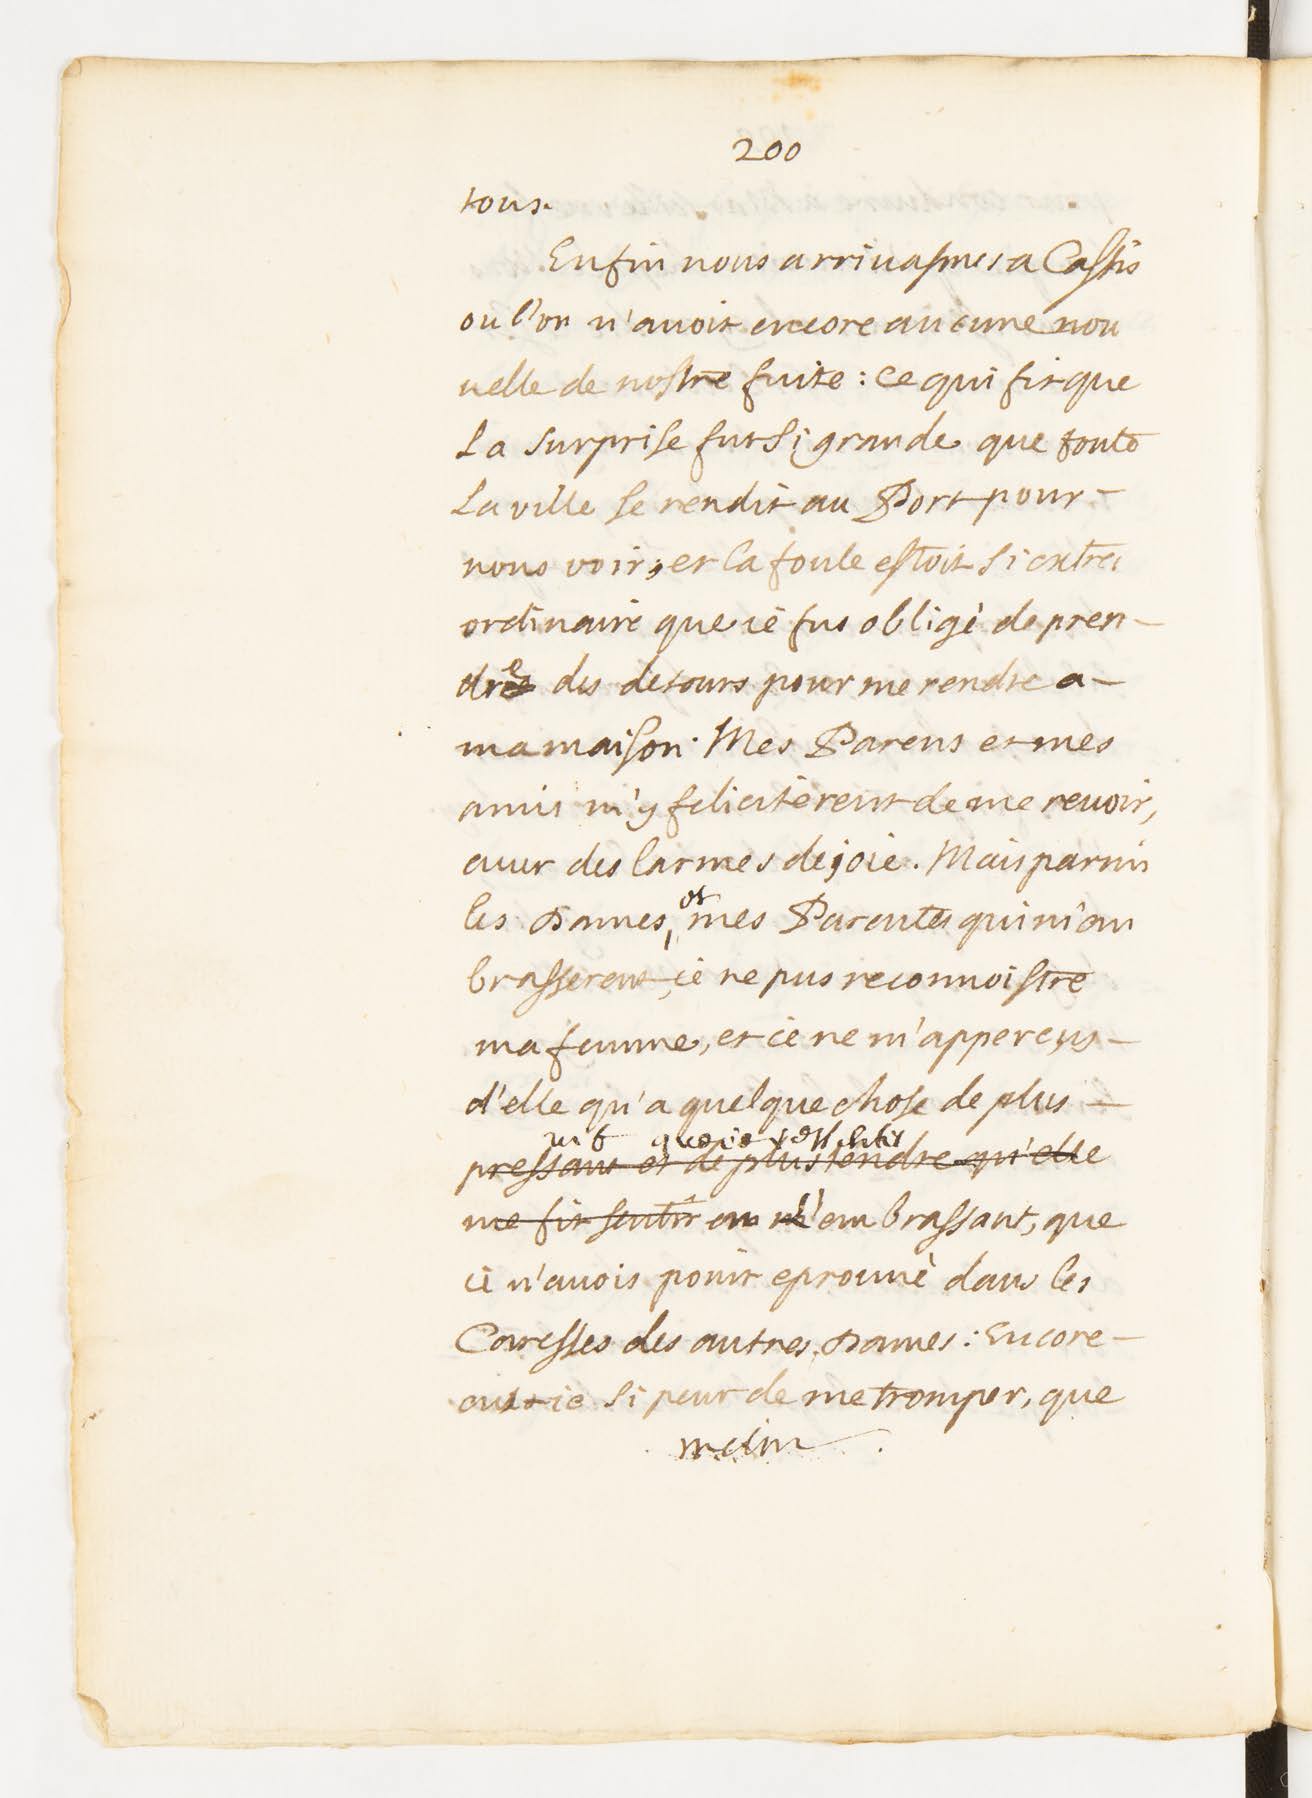 200
tous.
Enfin nous arriuasmes a Cassis
ou l'on n'auoit encore aucune nou
uelle de nostre fuite : ce qui fit que
La surprise fut si grande que toute
La ville se rendit au Port pour -
nous voir, et la foule estoit si extra
ordinaire que ie fus obligè de pren -
dre des detours pour me rendre a -
ma maison. Mes Parens et mes
amis m'y felicitèrent de me reuoir,
auec des larmes de joie. Mais parmi
les Dames, et mes Parentes qui m'em
brasserent, ie ne pus reconnoistre
ma femme, et ie ne m'apperçus -
d'elle qu'a quelque chose de plus -
uif que ie ressentis
pressant et de plus tendre qu'elle
me fit sentir en l'embrassant, que
ie n'auois point eprouuè dans les
Caresses des autres Dames : Encore -
eust-ie si peur de me tromper, que